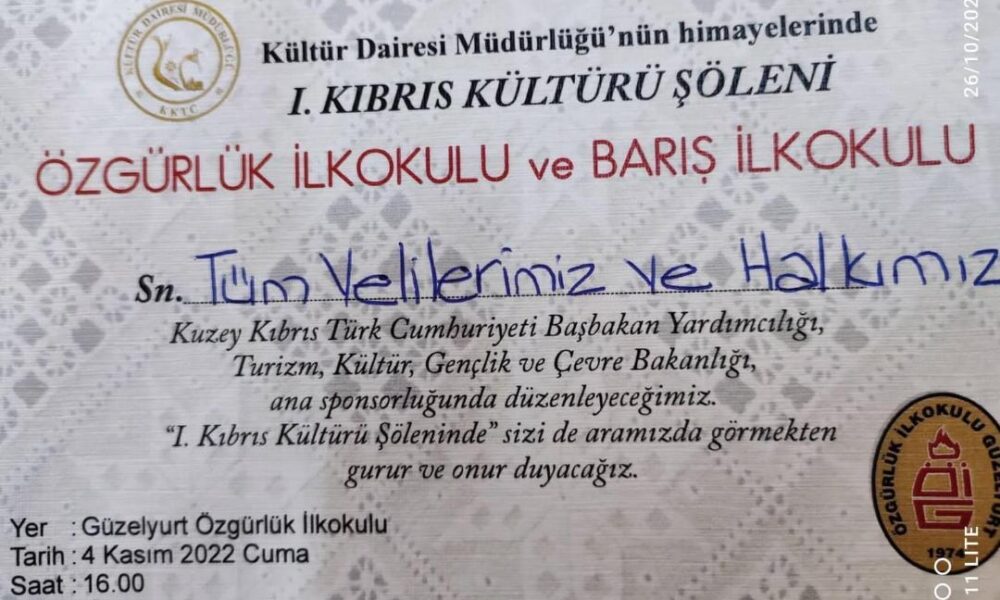 KÜLTÜR DAİRESİ MÜDÜRLÜĞÜ
KKTC
Kültür Dairesi Müdürlüğü’nün himayelerinde
I. KIBRIS KÜLTÜRÜ ŞÖLENİ
ÖZGÜRLÜK İLKOKULU ve BARIŞ İLKOKULU
Sn. Tüm Velilerimiz ve Halkımız
Kuzey Kıbrıs Türk Cumhuriyeti Başbakan Yardımcılığı,
Turizm, Kültür, Gençlik ve Çevre Bakanlığı,
ana sponsorluğunda düzenleyeceğimiz.
“I. Kıbrıs Kültürü Şöleninde” sizi de aramızda görmekten
gurur ve onur duyacağız.
Yer : Güzelyurt Özgürlük İlkokulu
Tarih : 4 Kasım 2022 Cuma
Saat : 16.00
ÖZGÜRLÜK İLKOKULU GÜZELYURT
ÖİG
1974
26/10/202
11 LITE